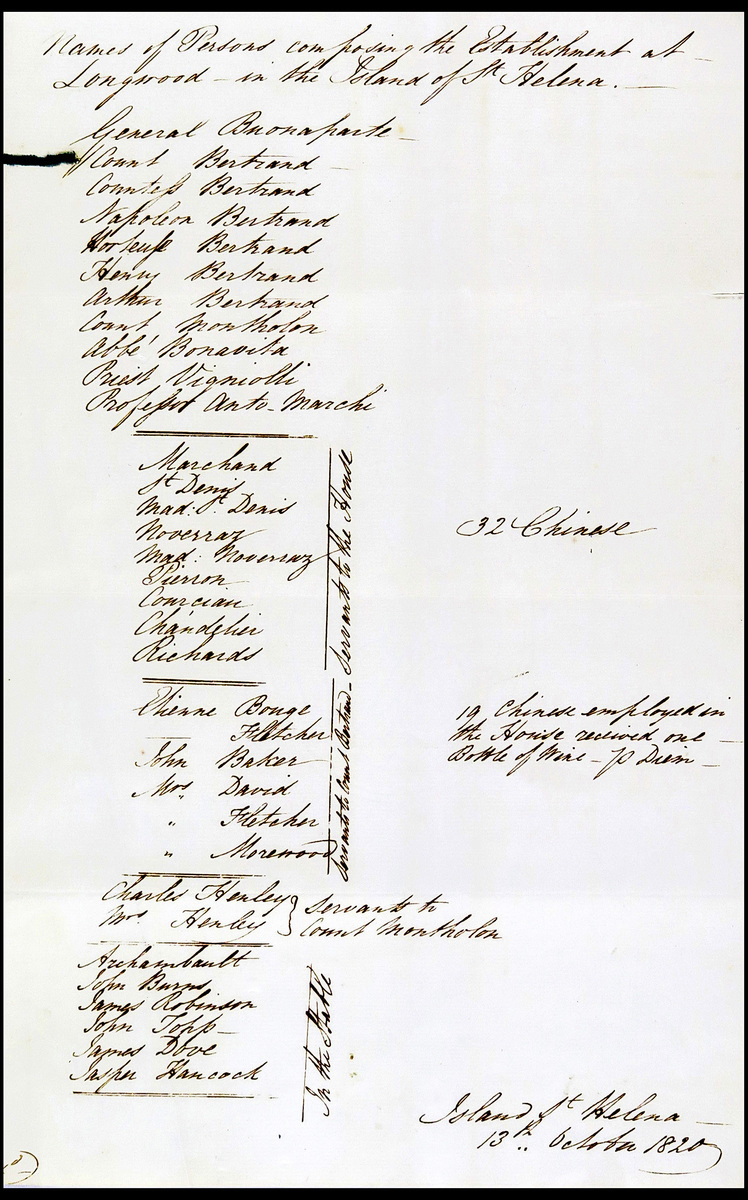 Names of Persons composing the Establishment at
Longwood – in the Island of St Helena. –
General Buonaparte –
Count Bertrand –
Countess Bertrand
Napoleon Bertrand
Hortense Bertrand
Henry Bertrand
Arthur Bertrand
Count Montholon
Abbé Bonavita
Priest Vigniolli
Professor Anto-Marchi
Marchand
St Denis
Mad: St Denis
Noverraz
Mad: Noverraz
Pierron
Courciau
Chandelier
Richards
Servants to the House
32 Chinese
Etienne Bouge
— Fletcher
John Baker
Mrs David
" Fletcher
" Morewood
Servants to Count Bertrand –
19 Chinese employed in
the House received one –
Bottle of Wine – p Diem –
Charles Henley
Mrs Henley
Servants to
Count Montholon
Archambault
John Burns
James Robinson
John Topp –
James Dove
Jasper Hancock
In the Stable
Island St Helena –
13th October 1820